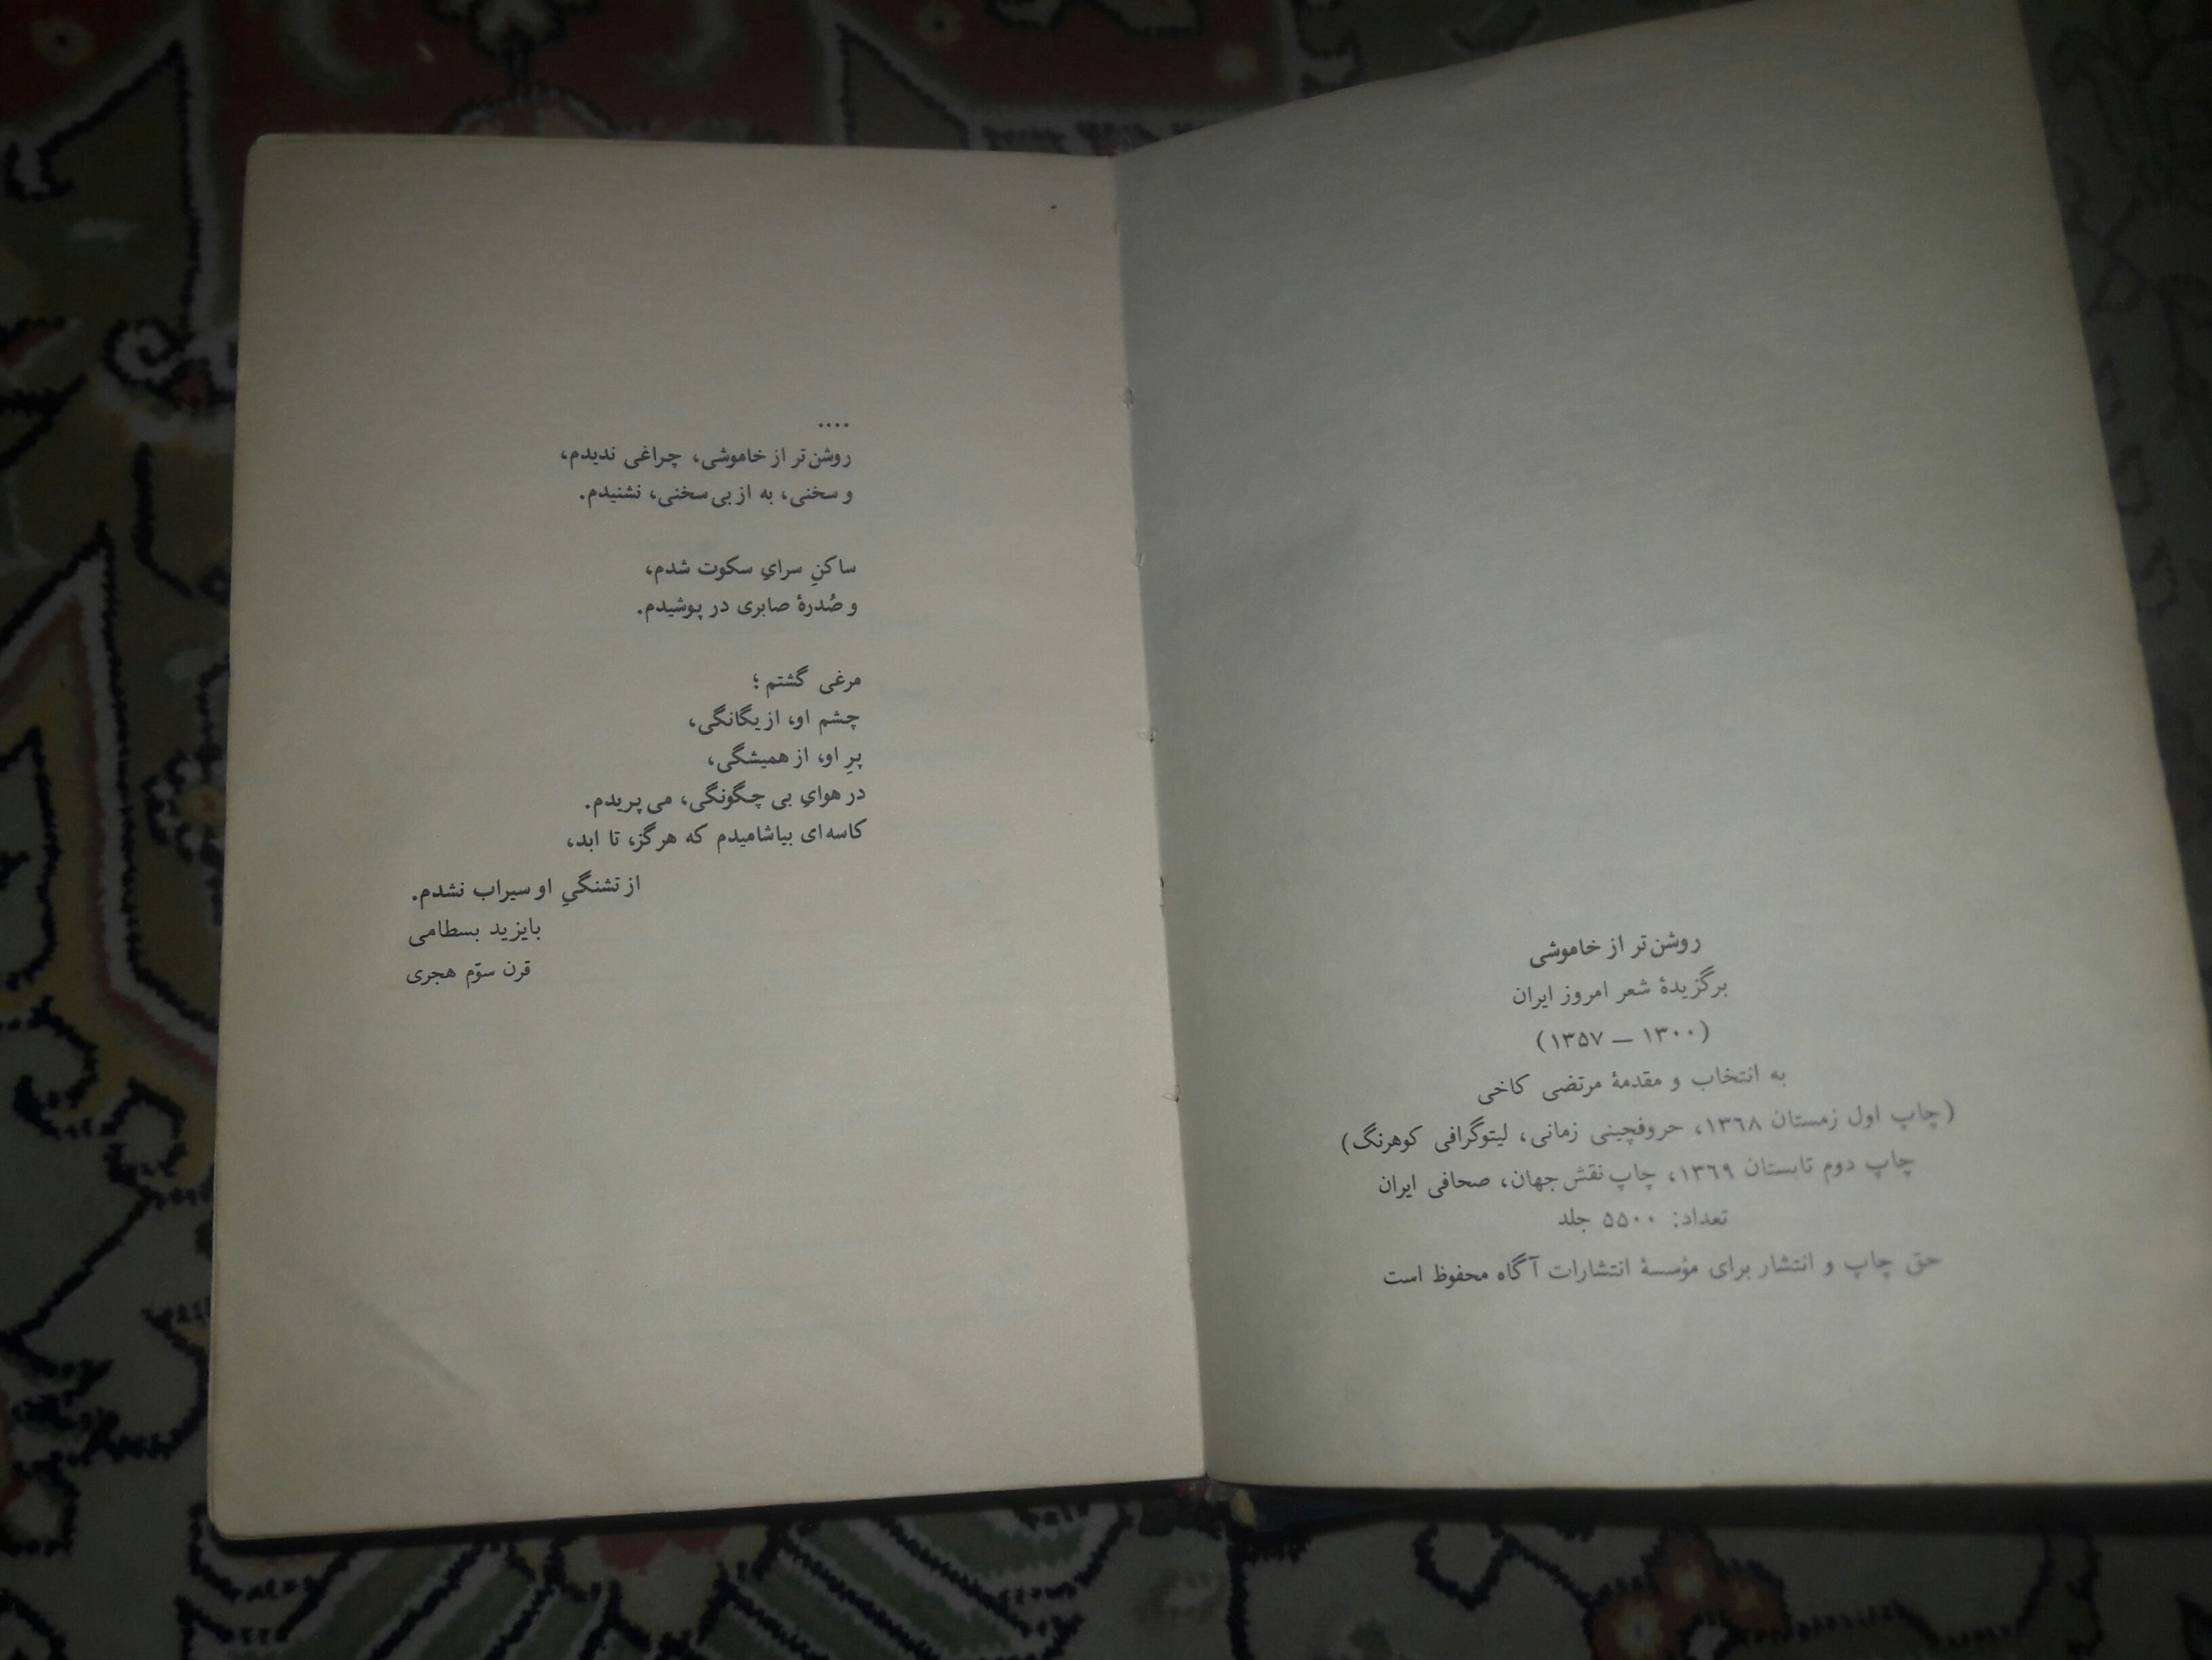 روشن‌تر از خاموشی
برگزیدهٔ شعر امروز ایران
(۱۳۰۰ — ۱۳۵۷)
به انتخاب و مقدمهٔ مرتضی کاخی
(چاپ اول زمستان ۱۳۶۸، حروفچینی زمانی، لیتوگرافی کوهرنگ)
چاپ دوم تابستان ۱۳۶۹، چاپ نقش جهان، صحافی ایران
تعداد: ۵۵۰۰ جلد
حق چاپ و انتشار برای مؤسسهٔ انتشارات آگاه محفوظ است
....
روشن‌تر از خاموشی، چراغی ندیدم،
و سخنی، به از بی‌سخنی، نشنیدم.
ساکنِ سرایِ سکوت شدم،
و صُدرهٔ صابری در پوشیدم.
مرغی گشتم؛
چشم او، از یگانگی،
پرِ او، از همیشگی،
در هوایِ بی چگونگی، می‌پریدم.
کاسه‌ای بیاشامیدم که هرگز، تا ابد،
از تشنگیِ او سیراب نشدم.
بایزید بسطامی
قرن سوّم هجری